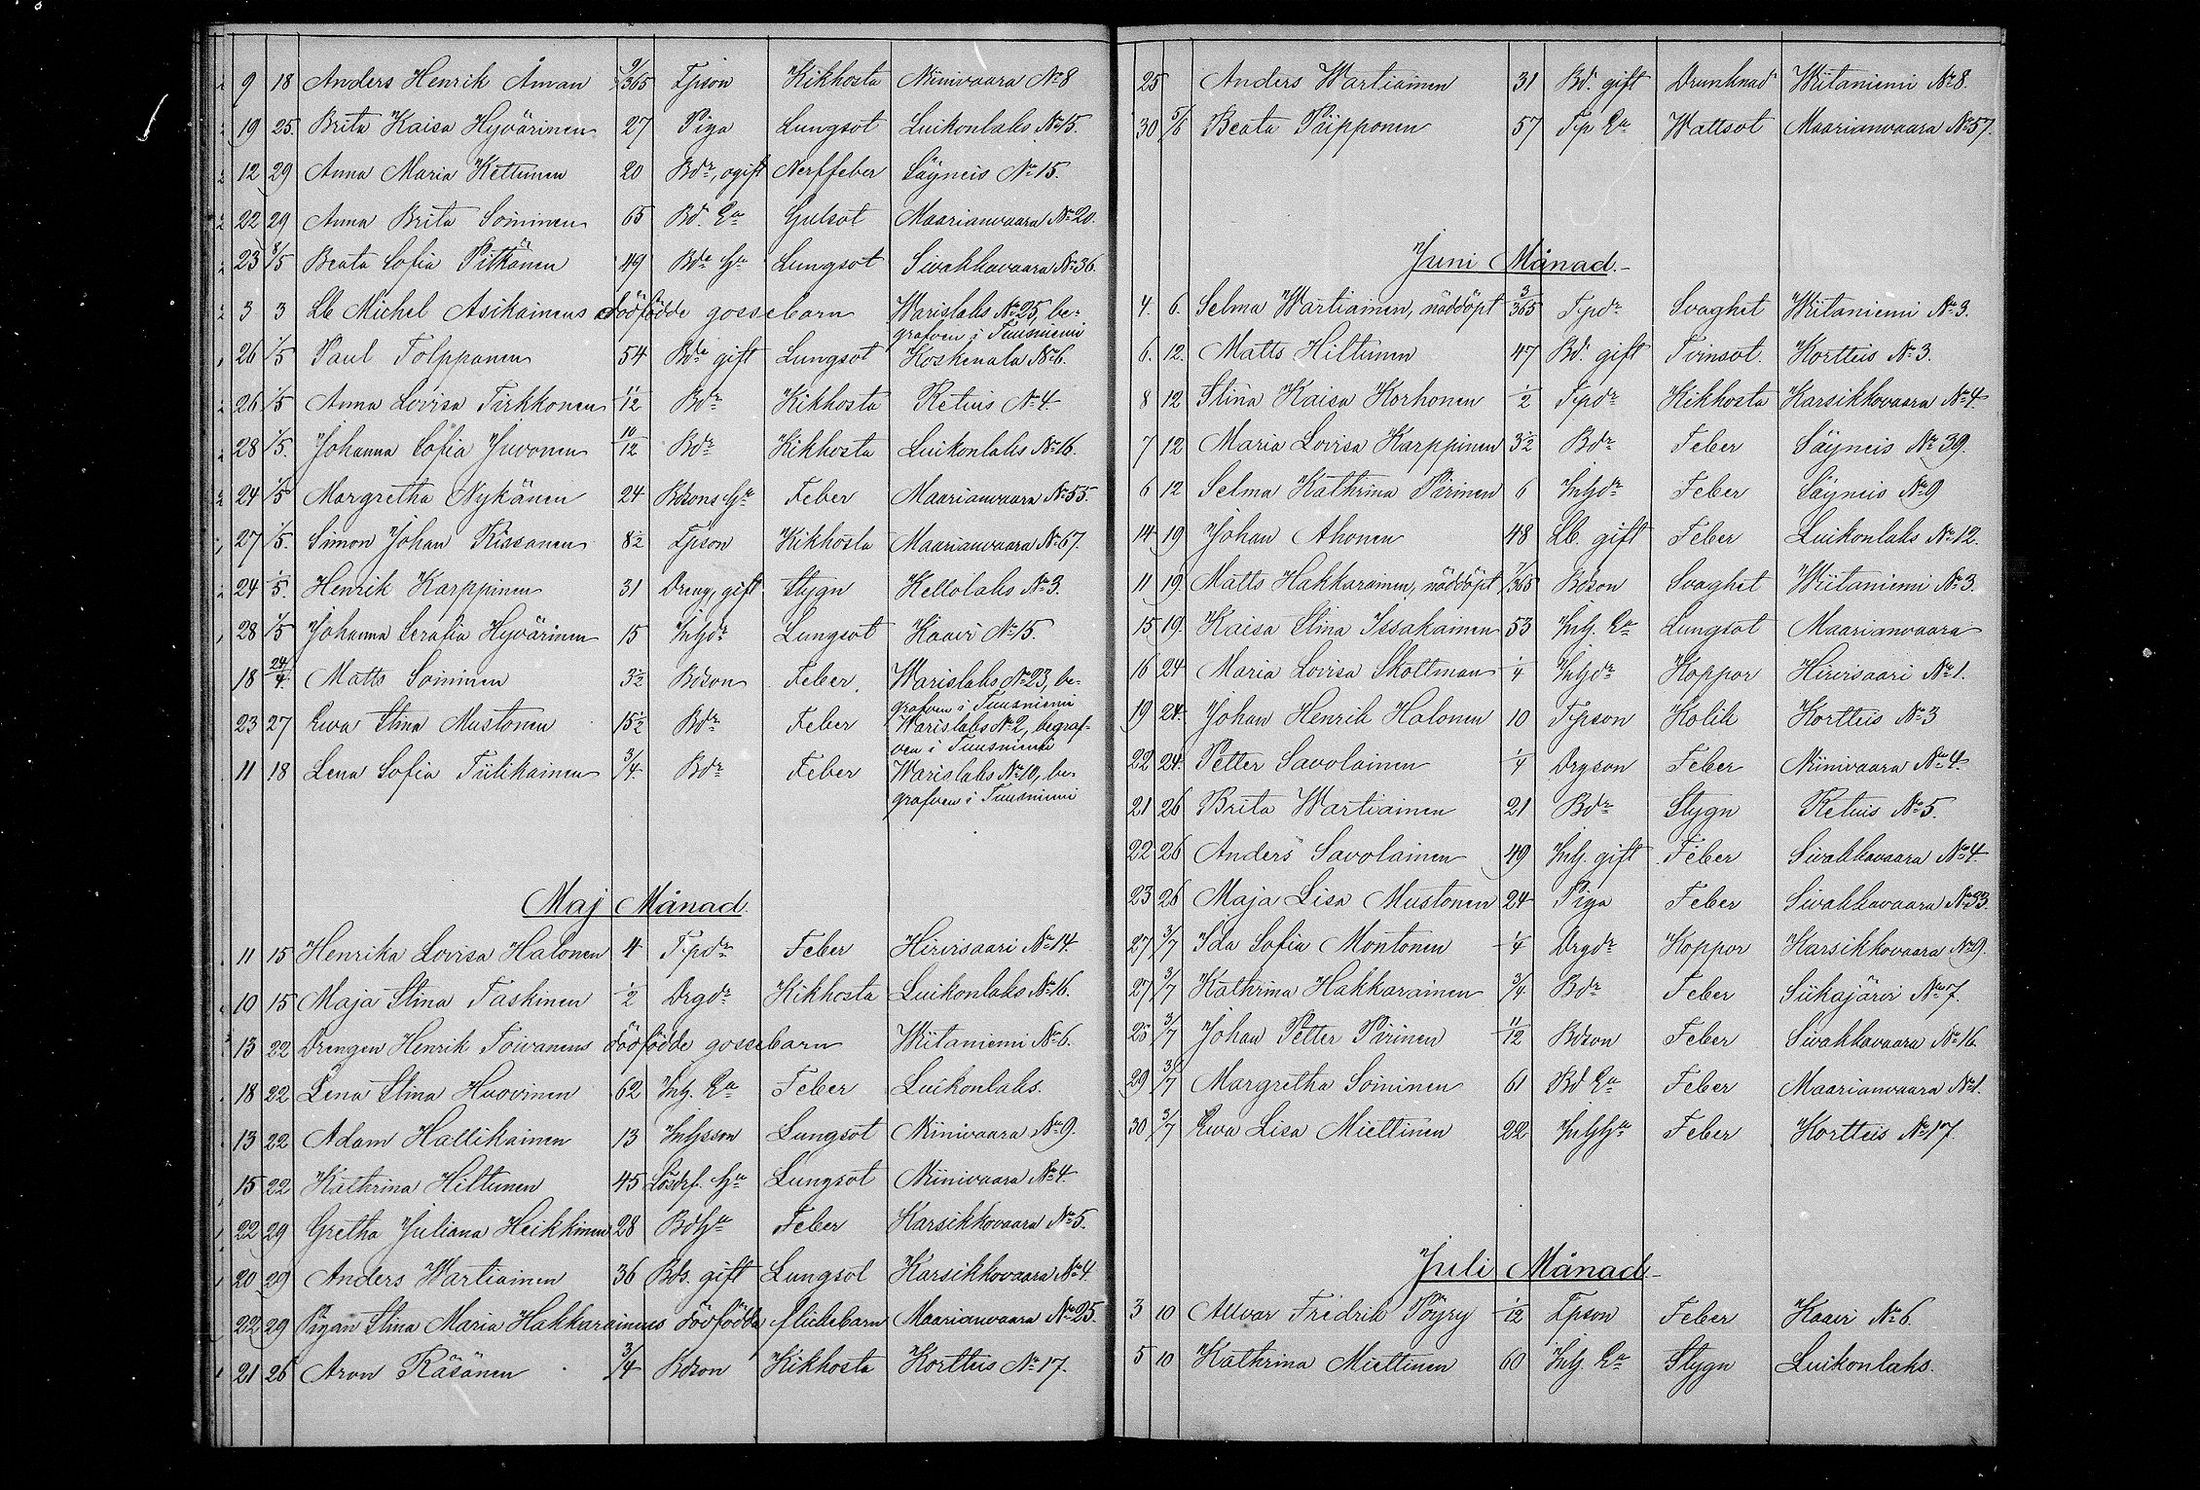 9 18 Anders Henrik Åman 9/365 Tpson Kikhosta Niinivaara No 8
19 25. Brita Kaisa Hyvärinen 27 Piga Lungsot Luikonlaks No 15.
12 29 Anna Maria Kettunen 20 Bdr, ogift Nerffeber Säyneis No 15.
22 29 Anna Brita Soininen 65 Bd. Ea Gulsot Maarianvaara No 20.
23 8/5 Beata Sofia Pitkänen 49 Bde Hu Lungsot Sivakkavaara No 36.
3 3 Lb Michel Asikainens dödfödde gossebarn Warislaks No 25, be-
grafven i Tuusniemi
26 1/5 Paul Tolppanen 54 Bde gift Lungsot Koskenala No 6.
26 1/5 Anna Lovisa Tirkkonen 1/12 Bdr Kikhosta Retuis No 4.
28 1/5. Johanna Sofia Juvonen 10/12 Bdr Kikhosta Luikonlaks No 16.
24 1/5 Margretha Nykänen 24 Bdsons Hu Feber Maarianvaara No 55.
27 1/5. Simon Johan Rissanen 8 1/2 Tpson Kikhosta Maarianvaara No 67.
24 1/5. Henrik Karppinen 31 Dreng, gift Stygn Kellolaks No 3.
28 1/5 Johanna Serafia Hyvärinen 15 Inhdr Lungsot Kaavi No 15.
18 24/4. Matts Soininen 3 1/2 Bdson Feber. Warislaks No 23, be-
grafven i Tuusniemi
23 27 Ewa Stina Mustonen 15 1/2 Bdr Feber Warislaks No 2, begraf-
ven i Tuusniemi
11 18 Lena Sofia Tiilikainen 3/4. Bdr Feber Warislaks No 10, be-
grafven i Tuusniemi
Maj Månad.
11 15 Henrika Lovisa Halonen 4 Tpdr Feber Hirvisaari No 14.
10 15 Maja Stina Taskinen 1/2 Drgdr Kikhosta Luikonlaks No 16.
13 22 Drengen Henrik Toivanens dödfödde gossebarn Wiitaniemi No 6.
18 22 Lena Stina Huovinen 62 Inh. Ea Feber Luikonlaks.
13 22 Adam Hallikainen 13 Inhsson Lungsot Niinivaara No 9.
15 22 Kathrina Hiltunen 45 Lösdr. Hu Lungsot Niinivaara No 4.
22 29 Gretha Juliana Heikkinen 28 BdHu Feber Karsikkovaara No 5.
20 29 Anders Wartiainen 36 Bds. gift Lungsot Karsikkovaara No 4.
22 29 Pigan Stina Maria Hakkarainens dödfödda flickebarn Maarianvaara No 25.
21 26 Aron Räsänen 3/4 Bdson Kikhosta Kortteis No 17.
25 Anders Wartiainen 31 Bd. gift Drunknad Wiitaniemi No 8.
30 5/6 Beata Piipponen 57 Tp Ea Wattsot Maarianvaara No 57.
Juni Månad.
4. 6. Selma Wartiainen, nöddöpt 3/365 Tpdr Svaghet Wiitaniemi No 3.
6. 12. Matts Hiltunen 47 Bd. gift Tvinsot. Kortteis No 3.
8 12 Stina Kaisa Korhonen 1/2 Tpdr Kikhosta Karsikkovaara No 4.
7 12 Maria Lovisa Karppinen 3 1/2 Bdr Feber Säyneis No 39.
6 12 Selma Kathrina Pärinen 6 Inhdr Feber Säyneis No 9
14 19 Johan Ahonen 48 Lb. gift Feber Luikonlaks No 12.
11 19. Matts Hakkarainen, nöddöpt 7/365 Bdson Svaghet Wiitaniemi No 3.
15 19. Kaisa Stina Issakainen 53 Inh. Ea Lungsot Maarianvaara
16 24 Maria Lovisa Skottman 1/4 Inhdr Koppor Hirvisaari No 1.
19 24. Johan Henrik Halonen 10 Tpson Kolik Kortteis No 3
22 24. Petter Savolainen 1/4 Drgson Feber Niinivaara No 4.
21 26 Brita Wartiainen 21 Bdr Stygn Retuis No 5.
22 26 Anders Savolainen 49 Inh. gift Feber Sivakkavaara No 4.
23 26 Maja Lisa Mustonen 24 Piga Feber Sivakkavaara No 33.
27 3/7 Ida Sofia Montonen 1/4 Drgdr Koppor Karsikkovaara No 9.
27 3/7 Kathrina Hakkarainen 3/4 Bdr Feber Siikajärvi No 7.
25 3/7 Johan Petter Pärinen 11/12 Bdson Feber Sivakkavaara No 16.
29 3/7 Margretha Soininen 61 Bd Ea Feber Maarianvaara No 1.
30 3/7 Ewa Lisa Miettinen 22 InhHu Feber Kortteis No 17.
Juli Månad.
3 10 Allvar Fredrik Pöyry 1/12 Tpson Feber Kaavi No 6.
5 10 Kathrina Miettinen 60 Inh. Ea Stygn Luikonlaks.